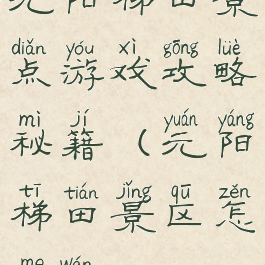 元阳梯田景
diǎn yóu xì gōng lüè
点游戏攻略
mì jí yuán yáng
秘籍（元阳
tī tián jǐng qū zěn
梯田景区怎
me wán